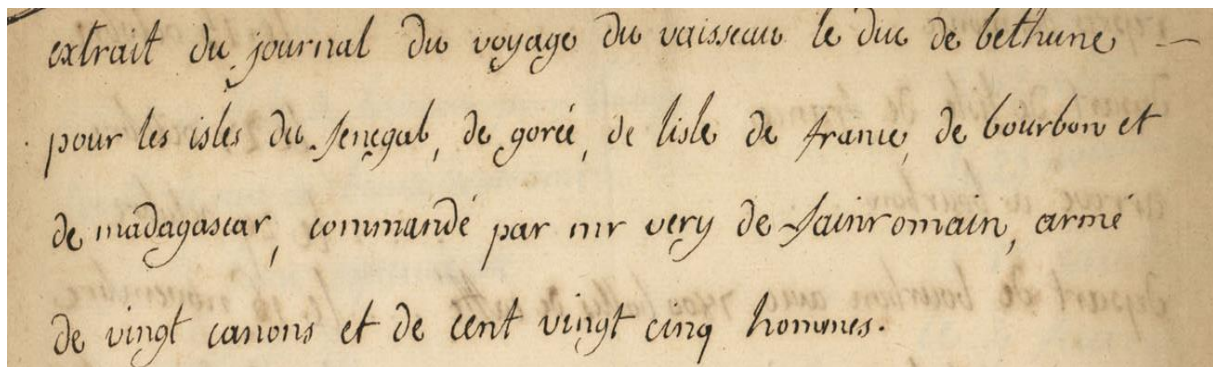 extrait du journal du voyage du vaisseau le duc de bethune —
pour les isles du Senegal, de gorée, de lisle de france, de bourbon et
de madagascar, commandé par mr very de Sainromain, armé
de vingt canons et de cent vingt cinq hommes.